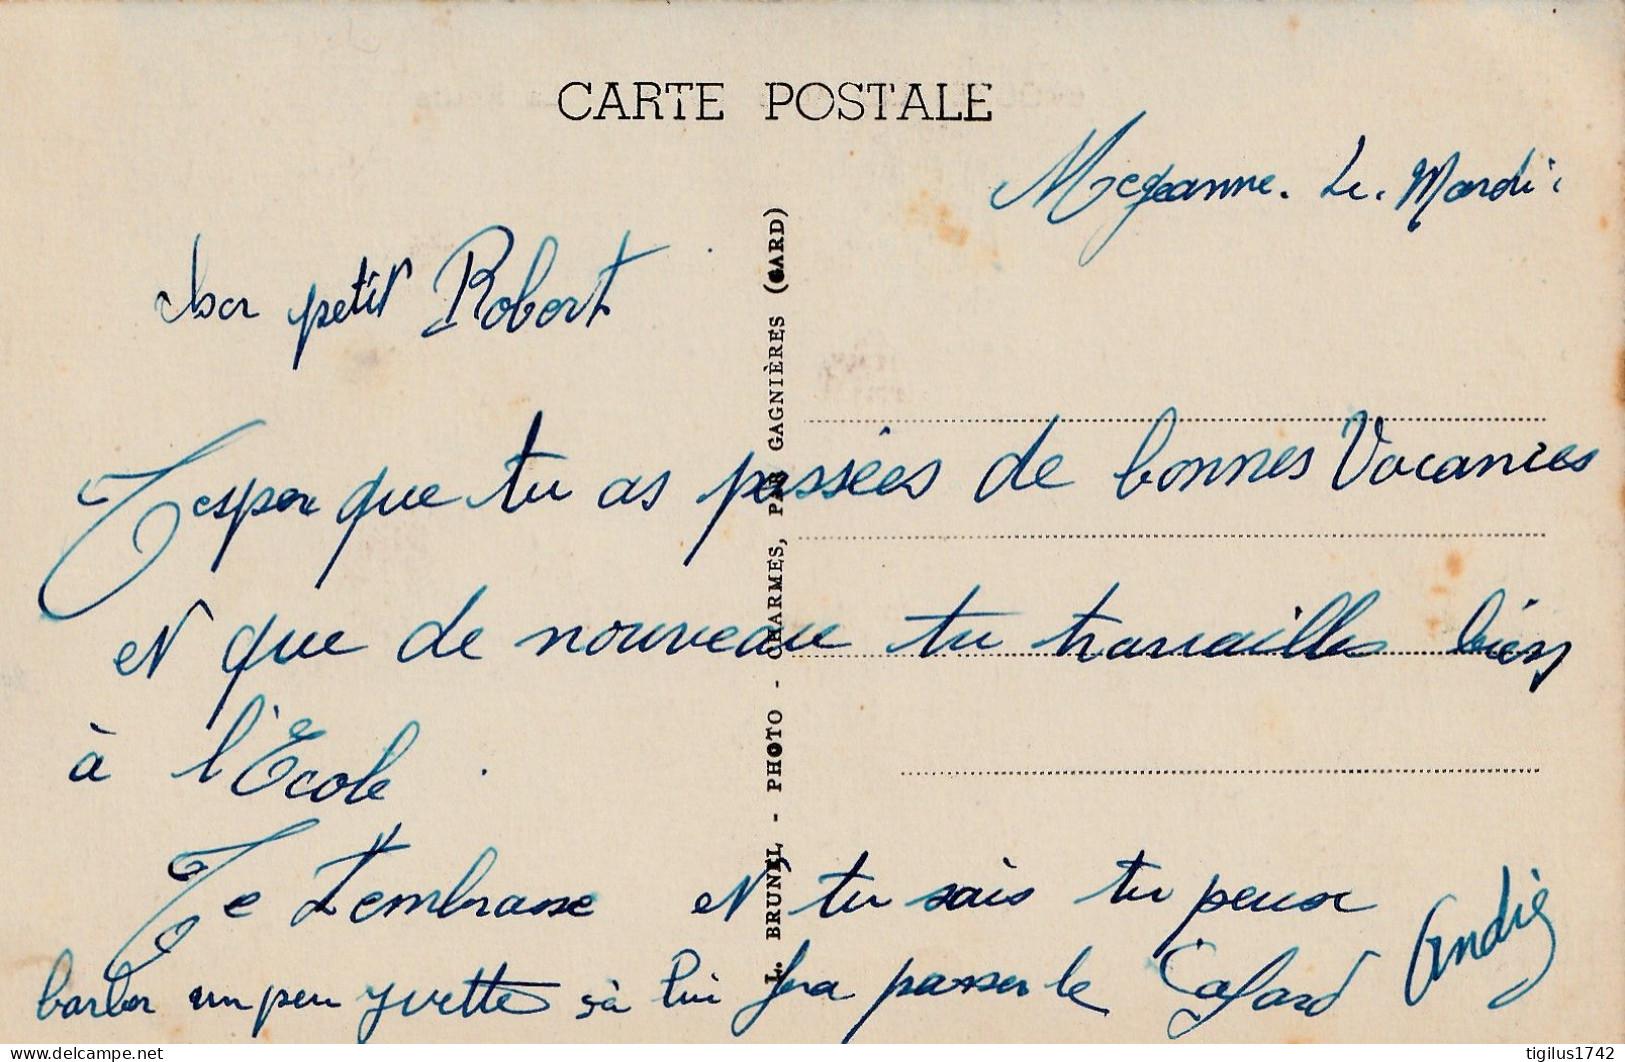 CARTE POSTALE
Mejeanne. Le. Mardi.
Cher petit Robert
J'esper que tu as passées de bonnes Vacances
et que de nouveau tu travailles bien
à l'Ecole.
Je t'embrasse et tu sais tu peux
barber un peu Yvette sà lui fera passer le Cafard
André
L. BRUNEL - PHOTO - CHARMES, PAR GAGNIÈRES (GARD)
tigilus1742